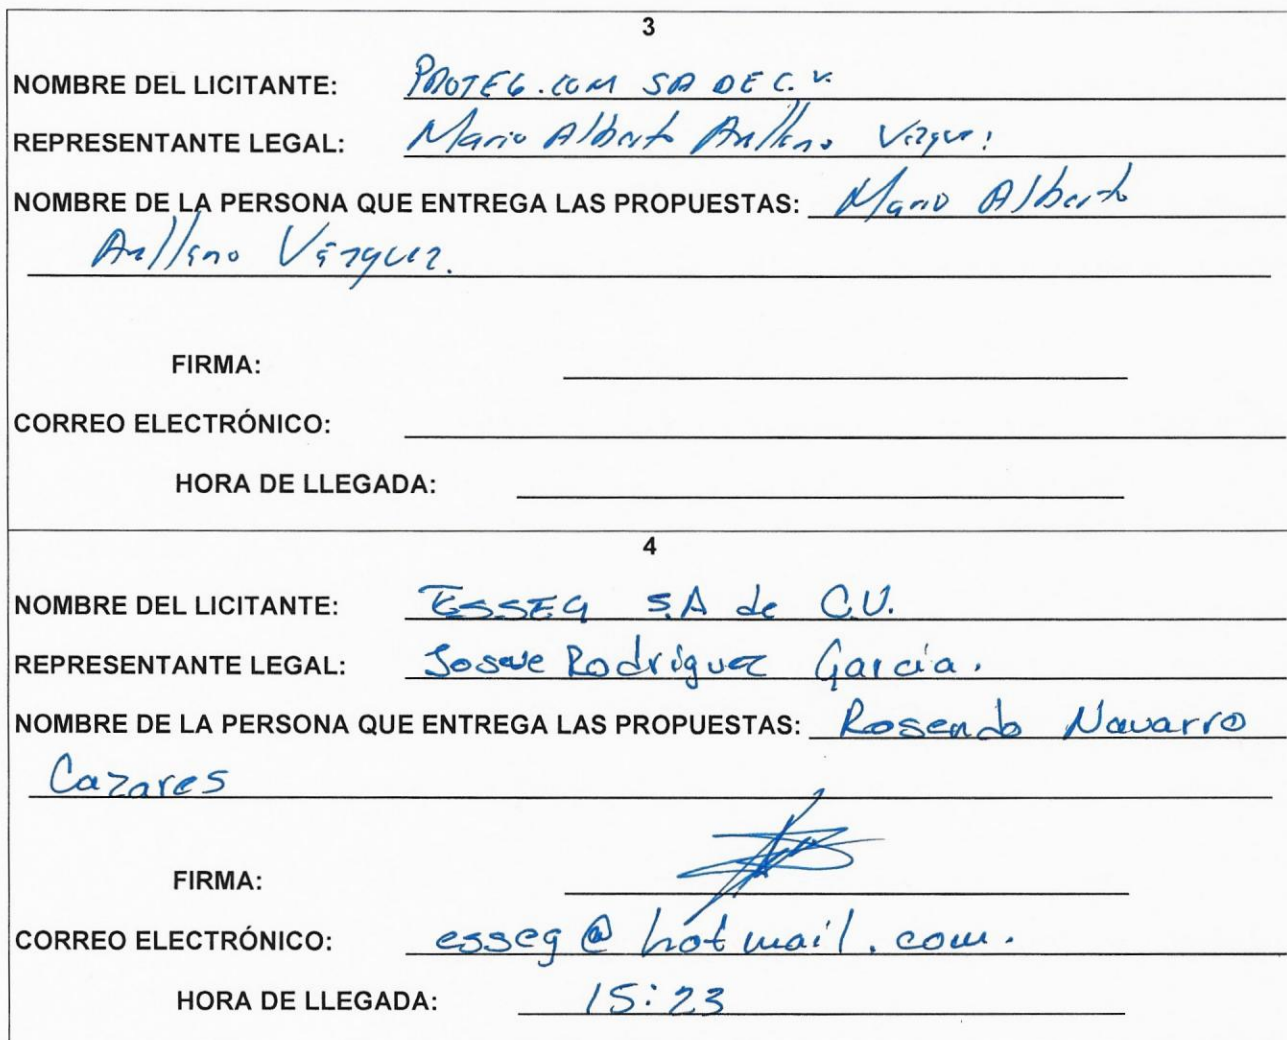 3
NOMBRE DEL LICITANTE: PROTEG.COM SA DE C.V.
REPRESENTANTE LEGAL: Mario Alberto Arellano Vázquez
NOMBRE DE LA PERSONA QUE ENTREGA LAS PROPUESTAS: Mario Alberto
Arellano Vázquez.
FIRMA:
CORREO ELECTRÓNICO:
HORA DE LLEGADA:
4
NOMBRE DEL LICITANTE: ESSEG S.A de C.V.
REPRESENTANTE LEGAL: Josue Rodríguez García.
NOMBRE DE LA PERSONA QUE ENTREGA LAS PROPUESTAS: Rosendo Navarro
Cazares
FIRMA:
CORREO ELECTRÓNICO: esseg@hotmail.com.
HORA DE LLEGADA: 15:23